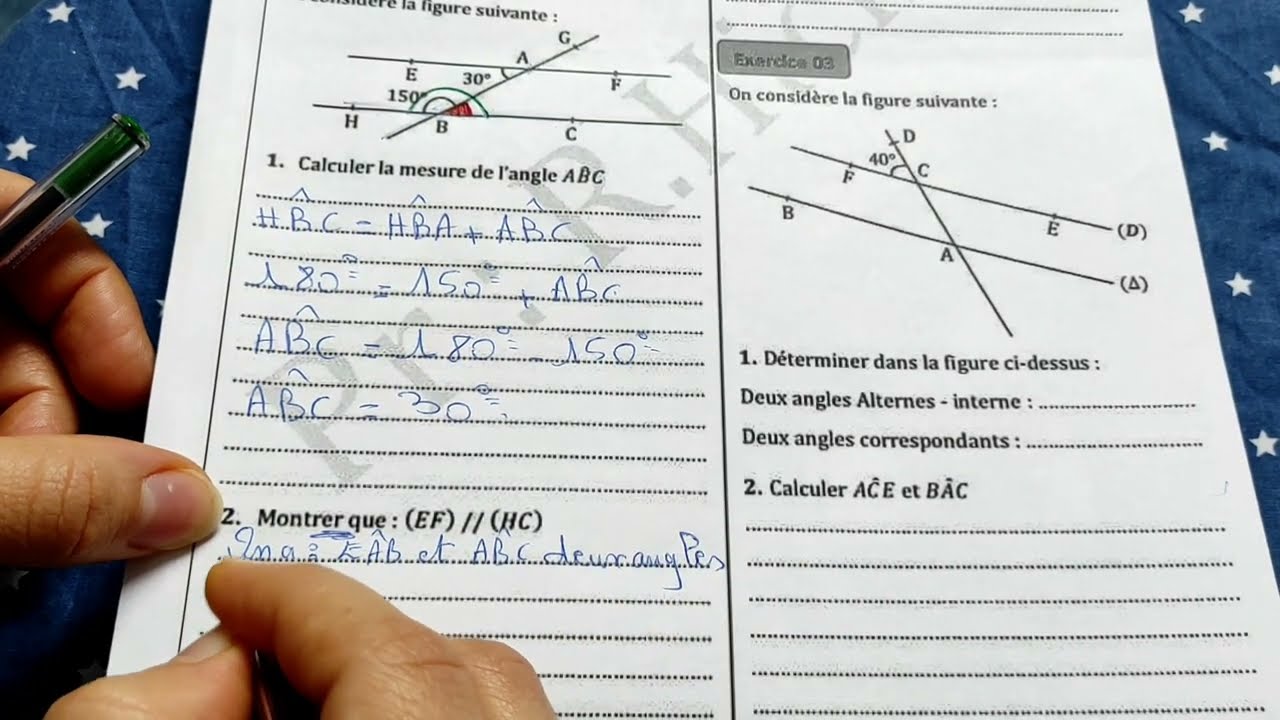 la figure suivante :
G
A
E
30°
F
150°
H
B
C
1. Calculer la mesure de l'angle AB̂C
HB̂C = HB̂A + AB̂C
180° = 150° + AB̂C
AB̂C = 180° - 150°
AB̂C = 30°.
2. Montrer que : (EF) // (HC)
On a : EÂB et AB̂C deux angles
Exercice 03
On considère la figure suivante :
D
40°
C
F
B
E
(D)
A
(Δ)
1. Déterminer dans la figure ci-dessus :
Deux angles Alternes - interne :
Deux angles correspondants :
2. Calculer AĈE et BÂC
Pr : R.H